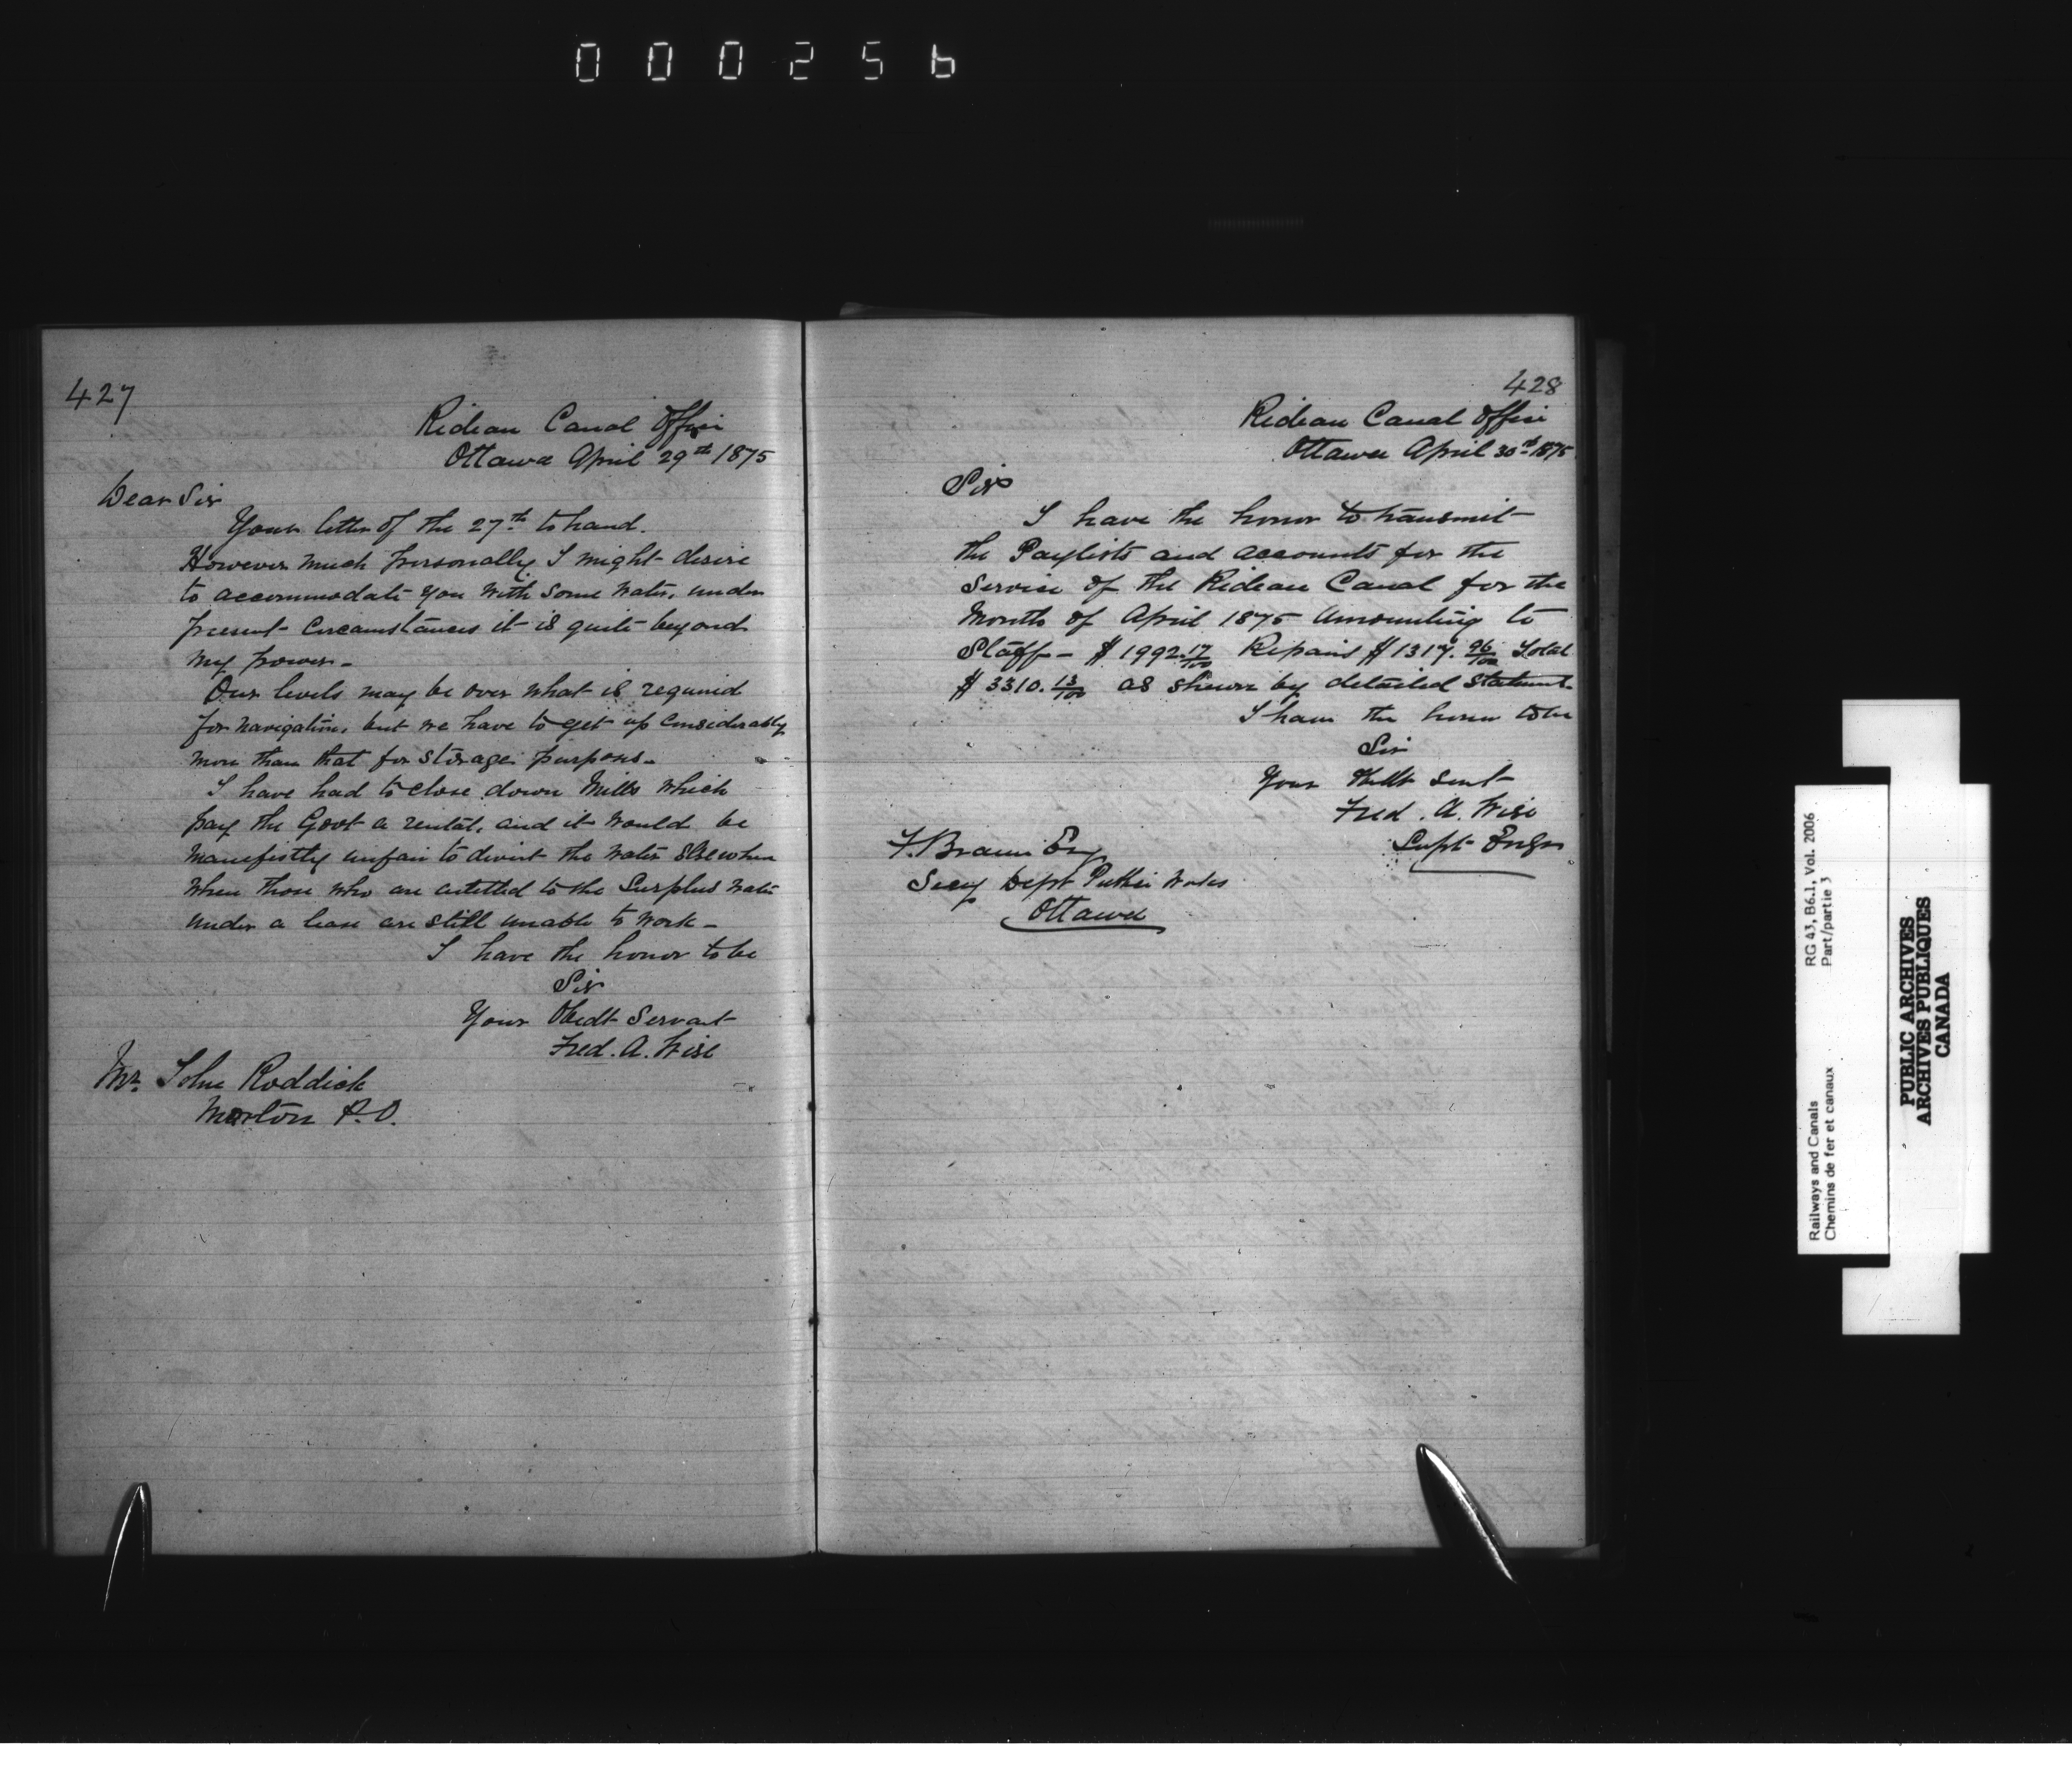 000256
427
Rideau Canal Office
Ottawa April 29th 1875
Dear Sir
Your letter of the 27th to hand.
However much personally I might desire
to accommodate you with some water, under
present circumstances it is quite beyond
my power -
Our levels may be over what is required
for navigation, but we have to get up considerably
more than that for storage purposes -
I have had to close down Mills which
pay the Govt a rental, and it would be
manifestly unfair to divert the water elsewhere
when those who are entitled to the Surplus water
under a lease are still unable to work -
I have the honor to be
Sir
Your Obedt Servant
Fred. A. Wise
Mr. John Roddick
Morton P.O.
428
Rideau Canal Office
Ottawa April 30th 1875
Sir
I have the honor to transmit
the Paylists and accounts for the
Service of the Rideau Canal for the
Month of April 1875 Amounting to
Staff - $1992.17/100 Repairs $1317.96/100 Total
$3310.13/100 as shewn by detailed Statement.
I have the honor to be
Sir
Your Obdt Servt
Fred. A. Wise
Supt Engr
F. Braun Esq
Secy Dept Public Works
Ottawa
Railways and Canals
Chemins de fer et canaux
RG 43, B6.1, Vol. 2006
Part/partie 3
PUBLIC ARCHIVES
ARCHIVES PUBLIQUES
CANADA